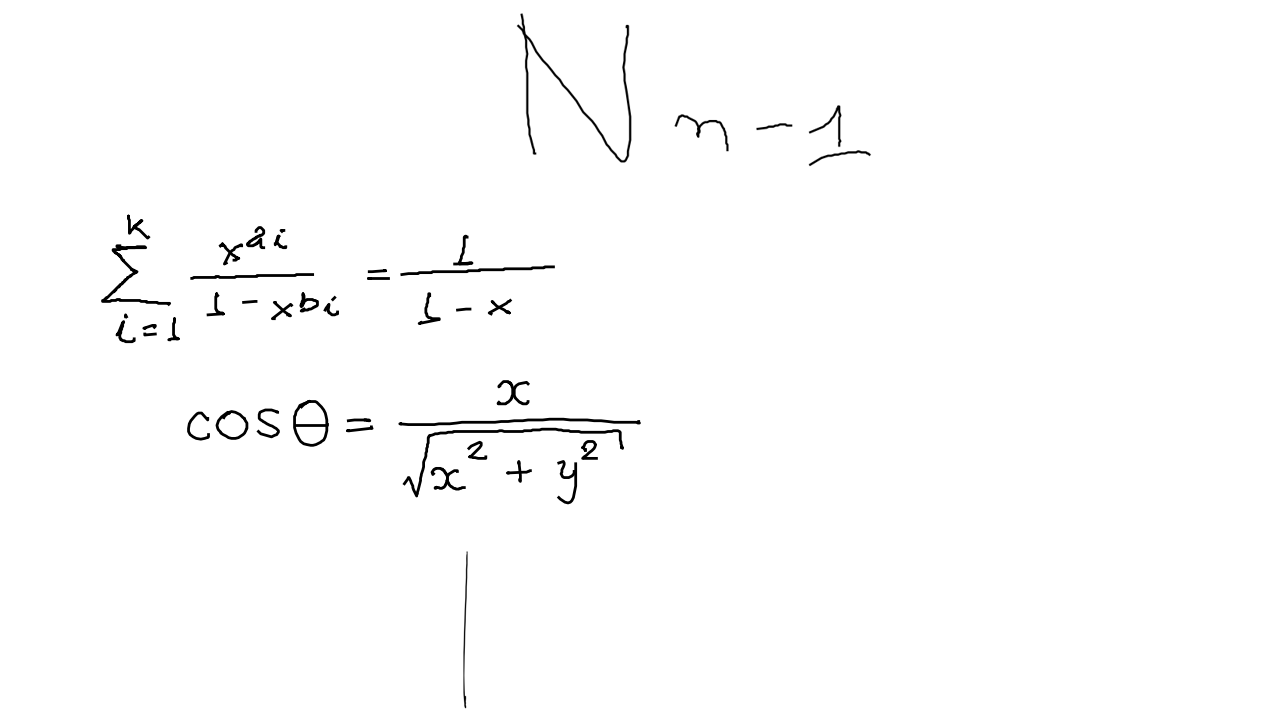 N_{n-1}
\sum_{i=1}^{k} \frac{x^{a_i}}{1-x^{b_i}} = \frac{1}{1-x}
\cos\theta = \frac{x}{\sqrt{x^2+y^2}}
|